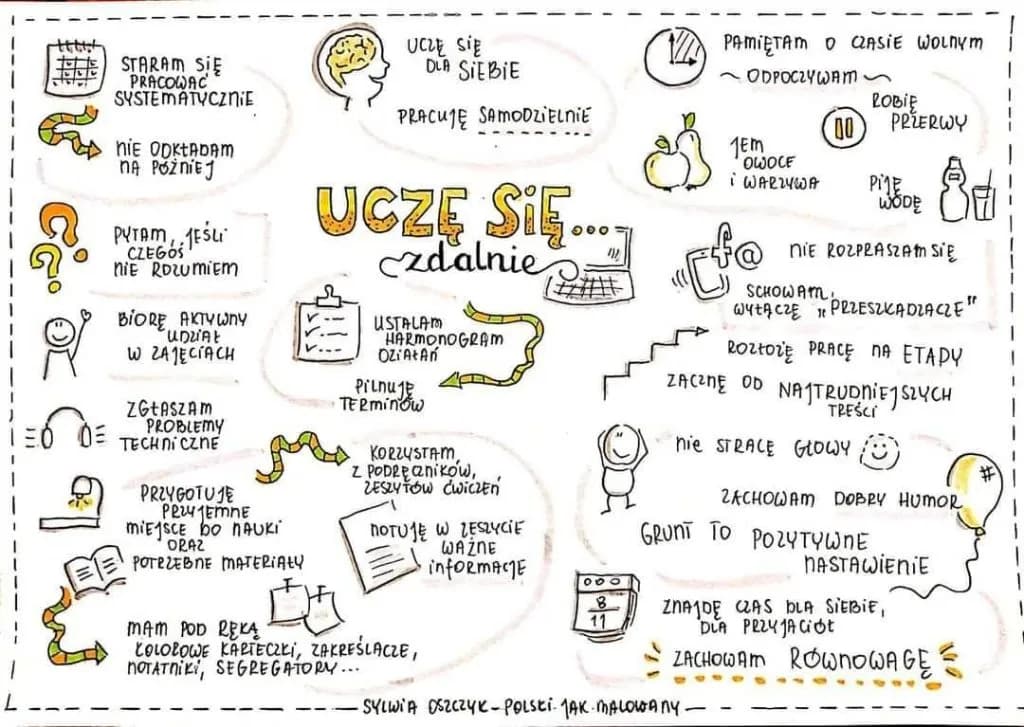 STARAM SIĘ
PRACOWAĆ
SYSTEMATYCZNIE
NIE ODKŁADAM
NA PÓŹNIEJ
UCZĘ SIĘ
DLA SIEBIE
PRACUJĘ SAMODZIELNIE
PAMIĘTAM O CZASIE WOLNYM
~ ODPOCZYWAM ~
ROBIĘ
PRZERWY
JEM
OWOCE
i WARZYWA
PIJĘ
WODĘ
UCZĘ SIĘ...
zdalnie
PYTAM, JEŚLI
CZEGOŚ
NIE ROZUMIEM
BIORĘ AKTYWNY
UDZIAŁ
W ZAJĘCIACH
ZGŁASZAM
PROBLEMY
TECHNICZNE
USTALAM
HARMONOGRAM
DZIAŁAŃ
PILNUJĘ
TERMINÓW
f @
NIE ROZPRASZAM SIĘ
SCHOWAM,
WYŁĄCZĘ „PRZESZKADZACZE"
ROZŁOŻĘ PRACĘ NA ETAPY
ZACZNĘ OD NAJTRUDNIEJSZYCH
TREŚCI
NIE STRACĘ GŁOWY
ZACHOWAM DOBRY HUMOR
#
GRUNT TO POZYTYWNE
NASTAWIENIE
PRZYGOTUJĘ
PRZYJEMNE
MIEJSCE DO NAUKI
ORAZ
POTRZEBNE MATERIAŁY
KORZYSTAM
Z PODRĘCZNIKÓW,
ZESZYTÓW ĆWICZEŃ
NOTUJĘ W ZESZYCIE
WAŻNE
INFORMACJE
MAM POD RĘKĄ
KOLOROWE KARTECZKI, ZAKREŚLACZE,
NOTATNIKI, SEGREGATORY...
8
11
ZNAJDĘ CZAS DLA SIEBIE,
DLA PRZYJACIÓŁ
ZACHOWAM RÓWNOWAGĘ
SYLWIA OSZCZYK - POLSKI JAK MALOWANY